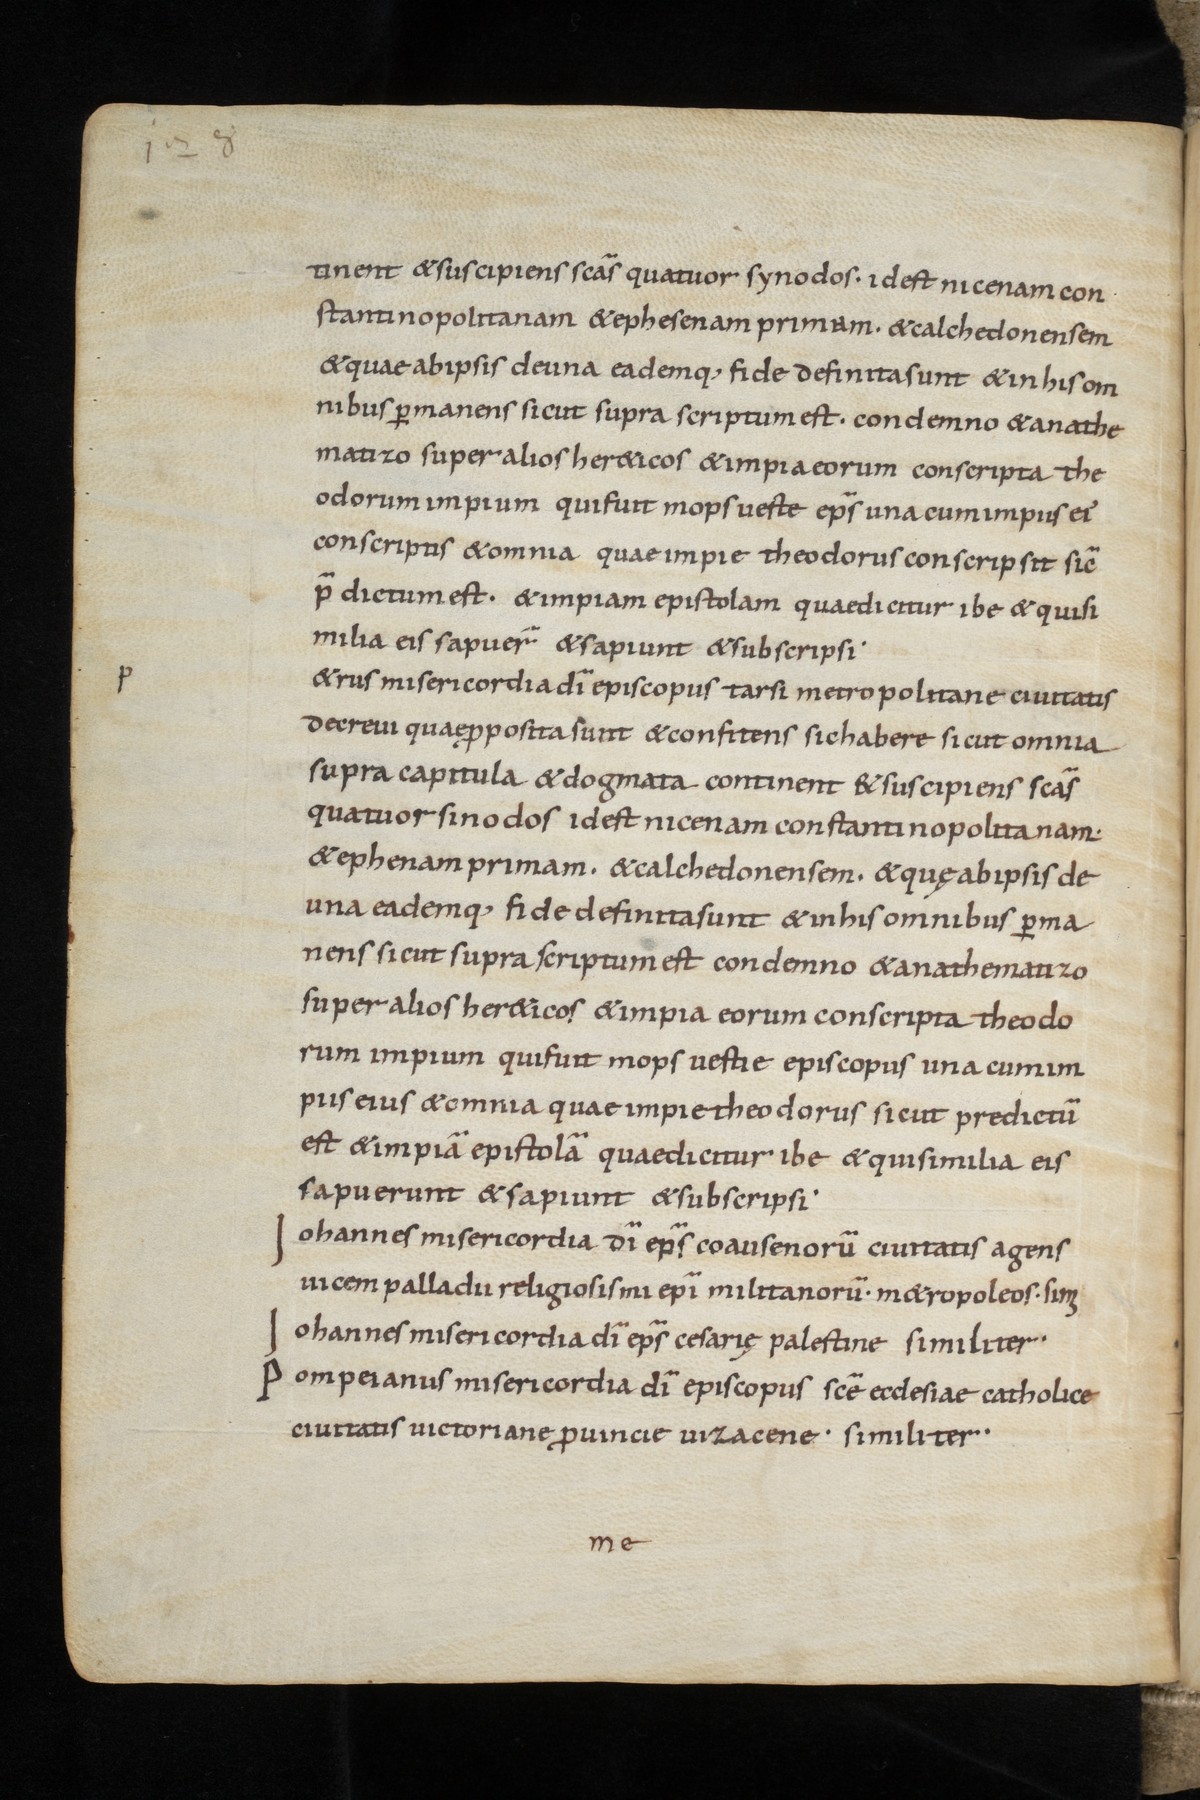 128
tinent & suscipiens scas̄ quatuor synodos· idest nicenam con
stantinopolitanam & ephesenam primam· & calchedonensem
& quae abipsis deuna eademq; fide definita sunt & in his om
nibus p̄manens sicut supra scriptum est· condemno & anathe
matizo super alios her&icos & impia eorum conscripta the
odorum impium qui fuit mopsueste ep̄s una cum impiis ei᾽
conscriptis & omnia quae impie theodorus conscripsit sic̄
p̄ dictum est· & impiam epistolam quae dicitur ibe & qui si
milia eis sapuer̄ & sapiunt & subscripsi·
p
&rus misericordia dī episcopus tarsi metropolitane ciuitatis
decreui quae ꝓposita sunt & confitens sic habere sicut omnia
supra capitula & dogmata continent & suscipiens scas̄
quatuor sinodos idest nicenam constantinopolitanam·
& ephenam primam· & calchedonensem· & quę abipsis de
una eademq; fide definita sunt & in his omnibus p̄ma
nens sicut supra scriptum est condemno & anathematizo
super alios her&icos & impia eorum conscripta theodo
rum impium qui fuit mopsuestie episcopus una cum im
piis eius & omnia quae impie theodorus sicut predictū
est & impiā epistolā quae dicitur ibe & qui similia eis
sapuerunt & sapiunt & subscripsi·
Iohannes misericordia dī ep̄s coausenorū ciuitatis agens
uicem palladii religiosismi epī militanorū· m&ropoleos· sim
Iohannes misericordia dī ep̄s cesarię palestine similiter·
Pompeianus misericordia dī episcopus scē ecclesiae catholice
ciuitatis uictoriane ꝓuincie uizacene· similiter·
me